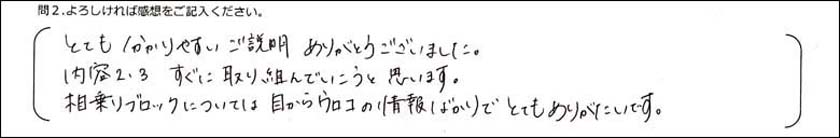 問2.よろしければ感想をご記入ください。
とても分かりやすいご説明 ありがとうございました。
内容2.3 すぐに取り組んでいこうと思います。
相乗りブロックについては目からウロコの情報ばかりでとてもありがたいです。